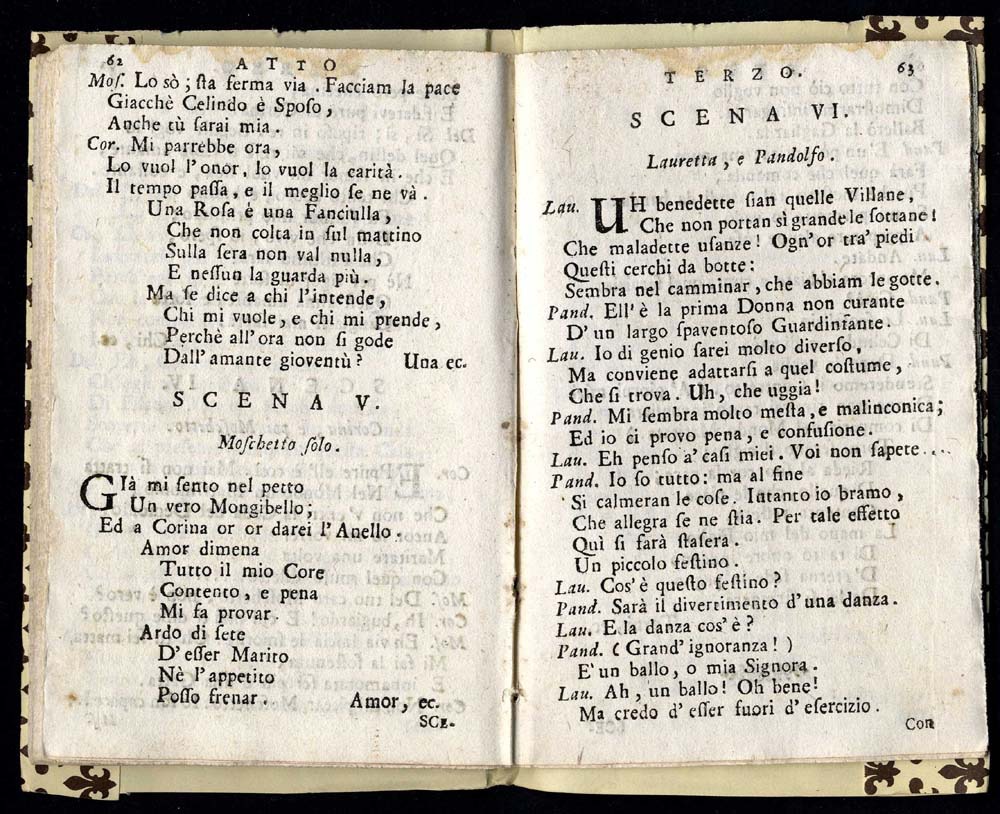 62
ATTO
Moſ. Lo sò; ſta ferma via. Facciam la pace
Giacchè Celindo è Spoſo,
Anche tù ſarai mia.
Cor. Mi parrebbe ora,
Lo vuol l'onor, lo vuol la carità.
Il tempo paſſa, e il meglio ſe ne và.
Una Roſa è una Fanciulla,
Che non colta in ſul mattino
Sulla ſera non val nulla,
E neſſun la guarda più.
Ma ſe dice a chi l'intende,
Chi mi vuole, e chi mi prende,
Perchè all'ora non ſi gode
Dall'amante gioventù? Una ec.
SCENA V.
Moſchetto ſolo.
GIà mi ſento nel petto
Un vero Mongibello;
Ed a Corina or or darei l'Anello.
Amor dimena
Tutto il mio Core
Contento, e pena
Mi fa provar.
Ardo di ſete
D'eſſer Marito
Nè l'appetito
Poſſo frenar. Amor, ec.
SCE-
TERZO.
63
SCENA VI.
Lauretta, e Pandolfo.
Lau. UH benedette ſian quelle Villane,
Che non portan sì grande le ſottane!
Che maladette uſanze! Ogn'or tra' piedi
Queſti cerchi da botte:
Sembra nel camminar, che abbiam le gotte.
Pand. Ell'è la prima Donna non curante
D'un largo ſpaventoſo Guardinfante.
Lau. Io di genio ſarei molto diverſo,
Ma conviene adattarſi a quel coſtume,
Che ſi trova. Uh, che uggia!
Pand. Mi ſembra molto meſta, e malinconica;
Ed io ci provo pena, e confuſione.
Lau. Eh penſo a' caſi miei. Voi non ſapete....
Pand. Io ſo tutto: ma al fine
Si calmeran le coſe. Intanto io bramo,
Che allegra ſe ne ſtia. Per tale effetto
Quì ſi farà ſtaſera.
Un piccolo feſtino.
Lau. Cos'è queſto feſtino?
Pand. Sarà il divertimento d'una danza.
Lau. E la danza cos'è?
Pand. (Grand'ignoranza!)
E' un ballo, o mia Signora.
Lau. Ah, un ballo! Oh bene!
Ma credo d'eſſer fuori d'eſercizio.
Con